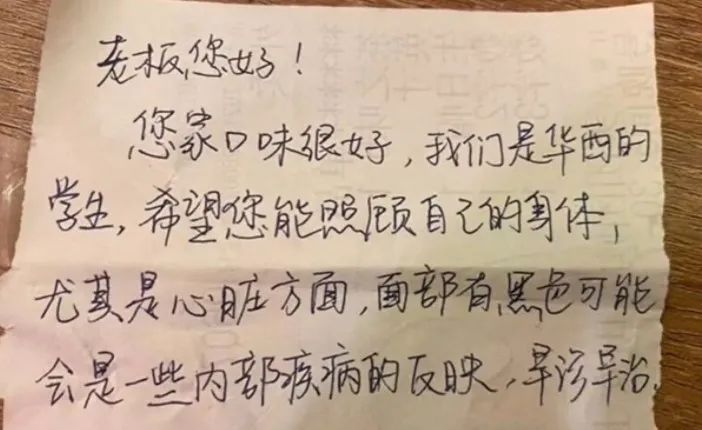 老板,您好!
您家口味很好,我们是华西的
学生,希望您能照顾自己的身体,
尤其是心脏方面,面部有黑色可能
会是一些内部疾病的反映,早诊早治.